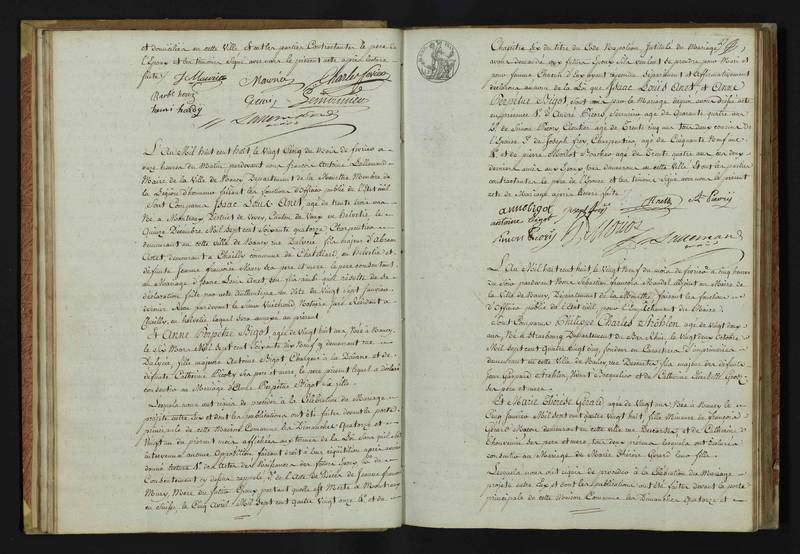 et domiciliés en cette Ville et autres parties Contractantes le père de
l'Epoux et les témoins Signé avec nous le présent acte après lecture
faite
J. Maurice Maurice
L'An Mil huit cent huit le Vingt Cinq du mois de fevrier à
onze heures du Matin pardevant nous françois Antoine Lallemand
Maire de la Ville de Nancy Département de la Meurthe Membre de
la Légion d'honneur faisant les fonctions d'Officier public de l'état civil
Sont Comparus Isaac Louis Anet, agé de trente trois ans
Né à Montreux District de Vevey, Canton de Vaud en helvétie le
Quinze Décembre Mil Sept cent Soixante quatorze Charpentier
demeurant en cette ville de Nancy rue fils majeur d'Abram
Anet, demeurant à Chailly commune du Chatellard en helvétie et
défunte Jeanne françoise Mury ses père et mère, le père consentant
au Mariage d'Isaac Louis Anet son fils ainsi qu'il résulte de sa
déclaration faite par acte authentique en date du Vingt Sept Janvier
dernier reçue pardevant le Sieur Notaire Juré Résidant à
Chailly, en helvétie lequel sera annexé au présent
Et Anne Perpétue Bigot agée de Vingt huit ans, Née à Nancy
le Six Mars Mil Sept cent Soixante dix Neuf y demeurant rue
fille majeure d'Antoine Bigot et de
défunte Catherine ses père et mère, le père présent lequel a déclaré
consentir au Mariage d'Anne Perpétue Bigot sa fille
Lesquels nous ont requis de procéder à la Célébration du Mariage
projetté entre Eux et dont les publications ont été faites devant la porte
principale de cette Maison Commune les Dimanches Quatorze et
Vingt un du présent mois affichées aux termes de la Loi Sans qu'il soit
intervenu aucune Opposition faisant droit à leur réquisition après avoir
donné lecture 1° des Actes de Naissances des futurs Epoux 2° du
Consentement cy dessus rappelé 3° de l'Acte de Décès de Jeanne françoise
Mury, Mère du futur Epoux portant qu'elle est Morte à Montreux
en Suisse, le Cinq Avril Mil Sept cent quatre Vingt onze 4° et du
Chapitre Six du titre du Code Napoléon Intitulé du Mariage
avons demandé aux futurs Epoux S'ils veulent se prendre pour Mari et
pour femme Chacun d'Eux ayant répondu Séparément et Affirmativement
déclarons au nom de la Loi que Isaac Louis Anet, et Anne
Perpétue Bigot, Sont unis par le Mariage de quoi avons dressé acte
en présence 1° d'André Serrurier agé de quarante quatre ans
2° de Simon Cloutier agé de trente cinq ans tous deux cousins de
l'Epouse 3° de Joseph Charpentier agé de Cinquante neuf ans
4° et de pierre agé de trente quatre ans ces deux
derniers amis aux Epoux tous demeurans en cette Ville et ont les parties
contractantes le père de l'Epouse et les témoins Signé avec nous le présent
acte de Mariage après lecture faite
anne bigot
antoine bigot
L'An Mil huit cent huit, le Vingt Neuf du mois de fevrier à cinq heures
du Soir pardevant Nous Sébastien françois Mandel adjoint au Maire de
la Ville de Nancy, Département de la Meurthe, faisant les fonctions
d'Officier public de l'état civil, pour l'Empêchement du Maire
Sont Comparus Philippe Charles Frohlen agé de Vingt deux
ans, Né à Strasbourg Département du Bas Rhin, le Vingt deux Octobre
Mil Sept cent Quatre Vingt cinq, fondeur en Caractères d'Imprimerie
demeurant en cette Ville de Nancy fils majeur de défunts
Jean Gaspard Frohlen et de Catherine Elisabeth
Ses père et mère
Et Marie Thérèse Gérard agée de Vingt ans Née à Nancy le
Cinq Janvier Mil Sept cent quatre Vingt huit, fille Mineure de françois
Gérard Maçon demeurant en cette ville et de Catherine
ses père et mère, tous deux présens lesquels ont déclaré
consentir au Mariage de Marie Thérèse Gérard leur fille
Lesquels nous ont requis de procéder à la Célébration du Mariage
projetté entre Eux et dont les publications ont été faites devant la porte
principale de cette Maison Commune les Dimanches Quatorze et